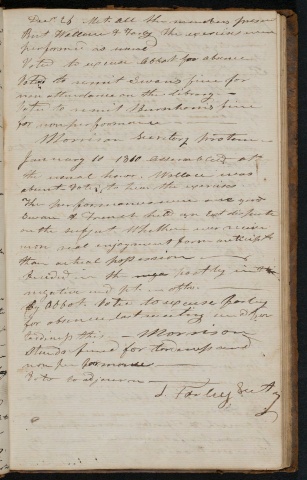 Dec. 26 Met all the members present
But Wallace & Farley The exercises were
performed as usual
Voted to excuse Abbot for absence
Voted to remit Swans fine for
non attendance on the library —
Voted to remit Burnhams fine
for non performance —
Morrison Secretary protem —
January 10 1810 assembled at
the usual hour. Wallace was
absent Voted to turn the exercises
The performances were as good
Swan & French held an est dispute
on the subject Whether we receive
more real enjoyment from anticipation
than actual possession —
Decided in the partly in the
negative and pt in other
By Abbot. Voted to excuse Farley
for absence last meeting and for
tardiness this — Morrison
Stands fined for tardiness and
non performance —
Voted to adjourn —
J. Farley Sect'y